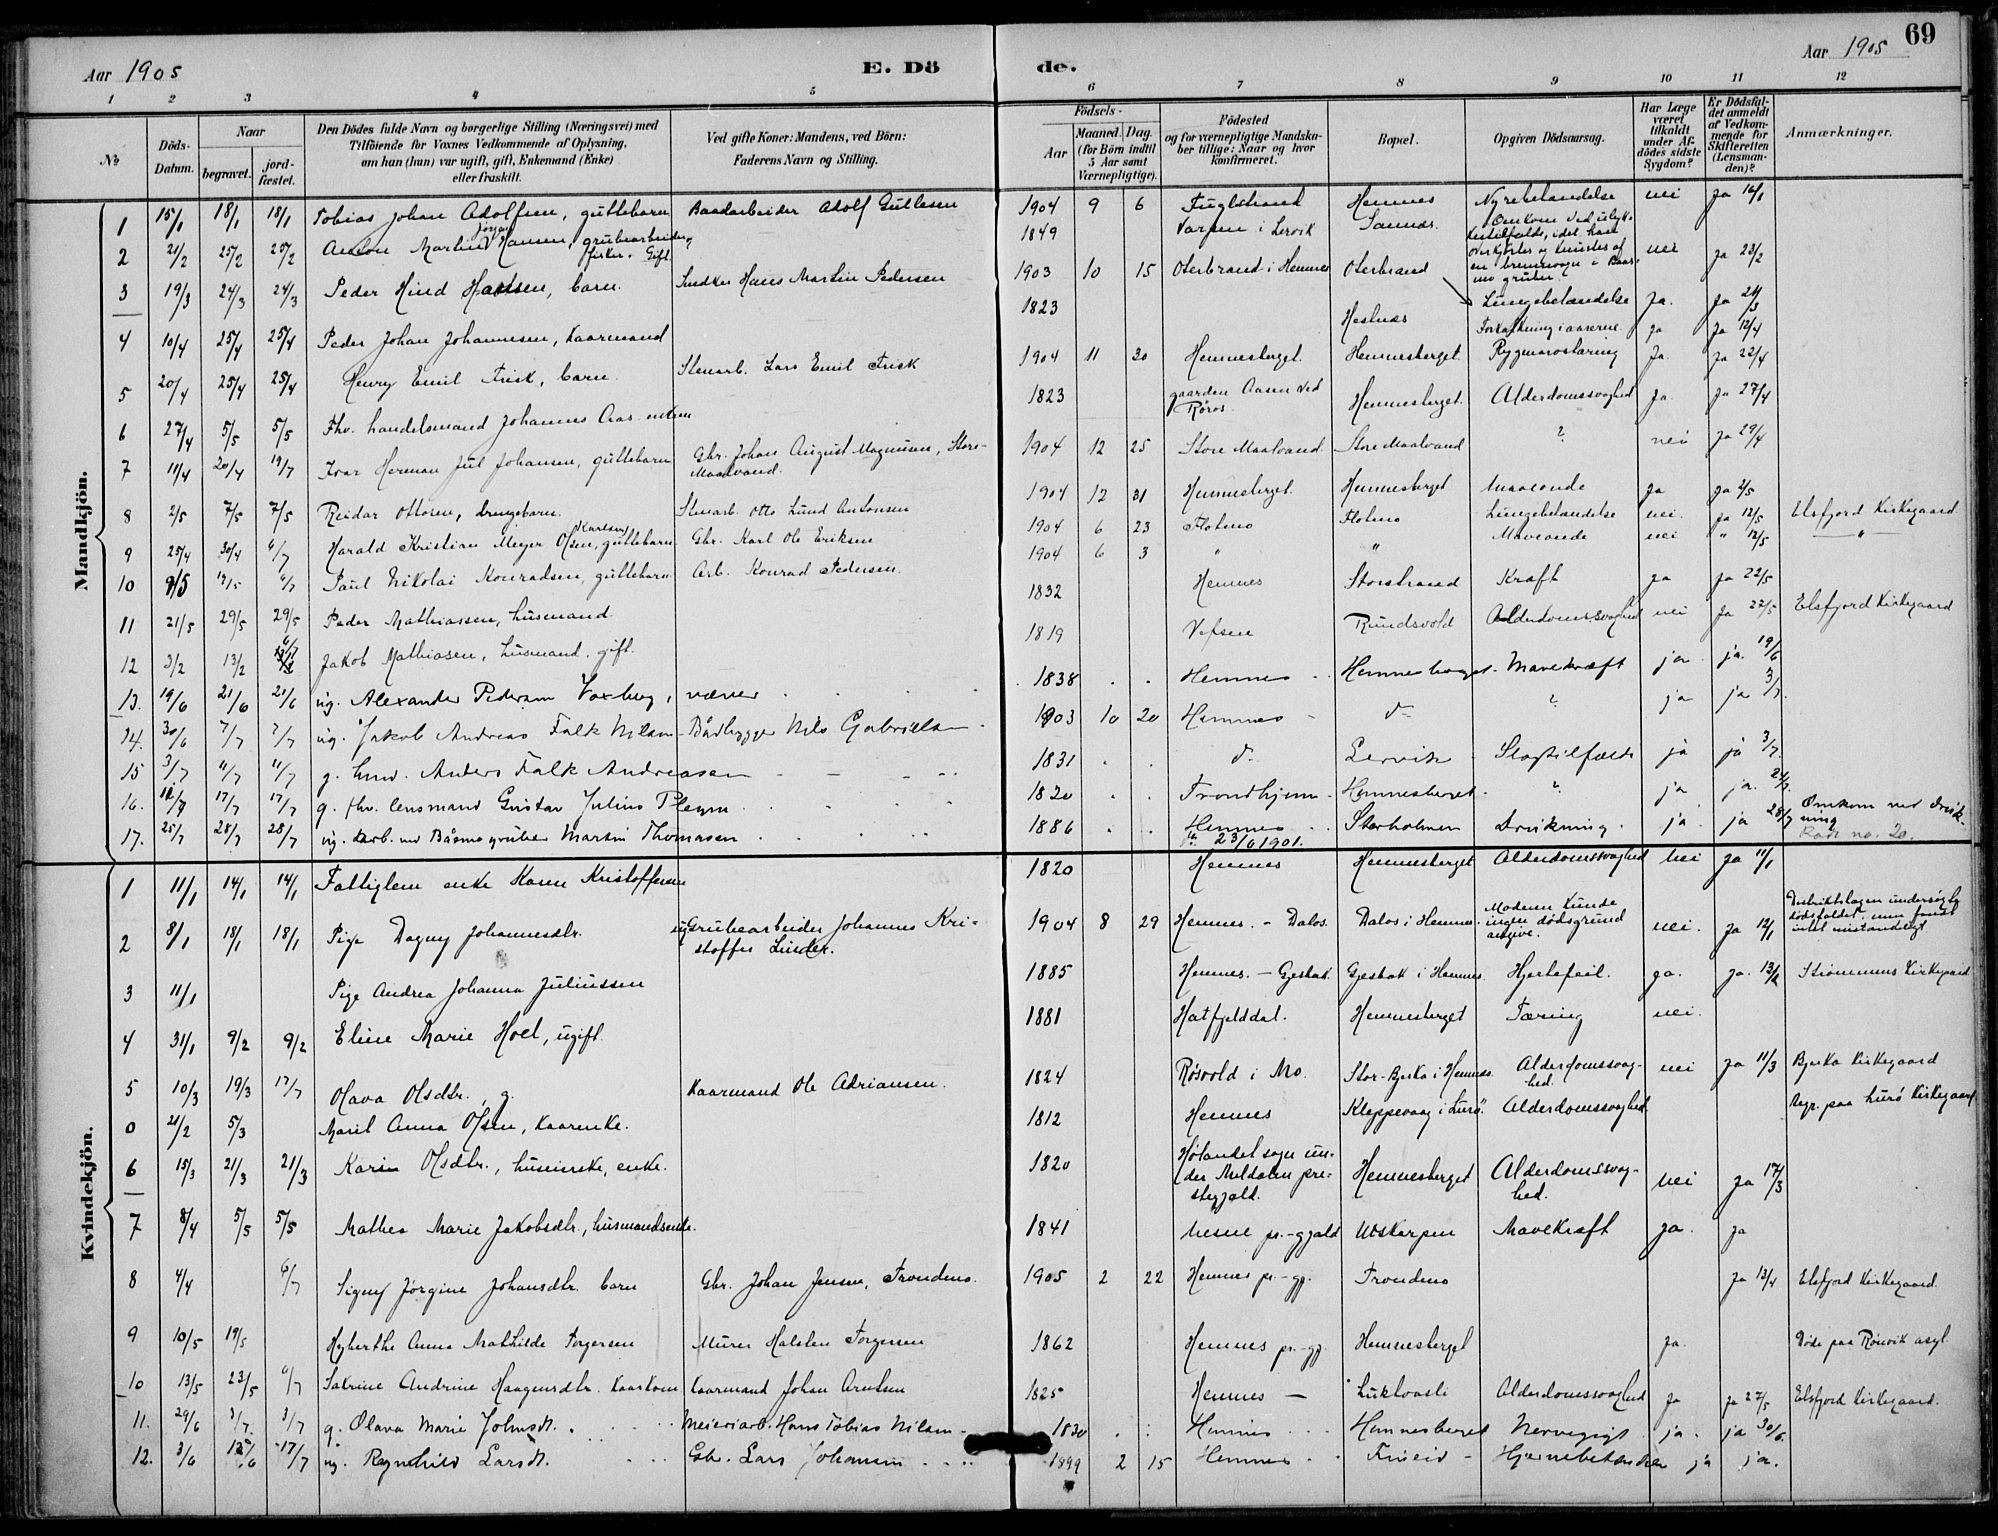 69
Aar 1905 E. Dö de. Aar 1905
1 2 3 4 5 6 7 8 9 10 11 12
No Döds-Datum. Naar begravet. jord-fæstet. Den Dödes fulde Navn og borgerlige Stilling (Næringsvei) med Tilföiende for Voxnes Vedkommende af Oplysning, om han (hun) var ugift, gift, Enkemand (Enke) eller fraskilt. Ved gifte Koner: Mandens, ved Börn: Faderens Navn og Stilling. Födsels- Aar Maaned. Dag. (for Börn indtil 5 Aar samt Værnepligtige). Födested og for værnepligtige Mandskaber tillige: Naar og hvor konfirmeret. Bopæl. Opgiven Dödsaarsag. Har Læge været tilkaldt under Afdödes sidste Sygdom? Er Dödsfaldet anmeldt af Vedkommende for Skifteretten (Lensmanden)? Anmærkninger.
Mandkjön.
1 15/1 18/1 18/1 Tobias Johan Adolfsen, guttebarn Baadarbeider Adolf Gullesen 1904 9 6 Fuglstrand Hemnes Nyrebetændelse nei Ja 16/1
2 21/2 25/2 25/2 Anton Martin Jørgen Hansen, grubearbeider, fisker. Gift 1849 Varpen i Lervik Sannes. Omkom ved ulykkestilfælde, idet han overkjørtes og knustes af en bremsevogn i Baasmo gruber. nei Ja 23/2
3 19/3 24/3 24/3 Peder Hind Hansen, barn. Snedker Hans Martin Pedersen 1903 10 15 Oterbrand i Hemnes Oterbrand Lungebetændelse Ja. Ja 21/3
4 10/4 25/4 25/4 Peder Johan Johannesen, Kaarmand 1823 Hestnæs Forkalkning i aarerne. Ja Ja 12/4
5 20/4 25/4 25/4 Henry Emil Frisk, barn. Stenarb. Lars Emil Frisk 1904 11 30 Hemnesberget. Hemnesberget. Rygmarvstæring Ja. Ja 22/4
6 27/4 5/5 5/5 Fhv. handelsmand Johannes Aas. enkem 1823 gaarden Aasen ved Røros. Hemnesberget. Alderdomssvaghed Ja. Ja 27/4
7 11/4 20/4 19/7 Ivar Herman Jul Johansen, guttebarn Gbr. Johan August Magnusen, Store-Maalvand. 1904 12 25 Store Maalvand Store Maalvand ? nei Ja 29/4
8 2/5 7/5 7/5 Reidar Ottosen, drengebarn. Stenarb. Otto Lund Antonsen 1904 12 31 Hemnesberget. Hemnesberget Maveonde Ja Ja 2/5
9 25/4 30/4 6/7 Harald Kristian Meyer Olsen, Karlsen, guttebarn Gbr. Karl Ole Eriksen 1904 6 23 Flotmo Flotmo Lungebetændelse nei. Ja 12/5 Elsfjord Kirkegaard
10 9/5 12/5 6/7 Paul Nikolai Konradsen, guttebarn Arb. Konrad Pedersen. 1904 6 3 " " Maveonde nei " 12/5 "
11 21/5 29/5 29/5 Peder Mathiassen, husmand. 1832 Hemnes Storstrand Kræft Ja Ja 22/5
12 3/2 13/2 6/7 Jakob Mathiasen, husmand. gift. 1819 Vefsen Rundsvold Alderdomssvaghed nei Ja 22/5 Elsfjord Kirkegaard
13. 19/6 21/6 21/6 ug. Alexander Pedersen Voxberg, 1838 Hemnes Hemnesberget. Mavekræft ja. ja. 19/6
14. 30/6 7/7 7/7 ug. Jakob Andreas Falk Nilsen Bådbygger Nils Gabrielsen 1903 10 20 Hemnes d° ? ja ja 3/7.
15 3/7 11/7 11/7 g. hmd. Anders Falk Andreasen 1831 d° Lervik Slagtilfælde ja ja 3/7.
16. 12/7 17/7 17/7 g. fhv. lensmand Gustav Julius Pleym 1820 Trondhjem Hemnesberget. ? ja ja. 24/7.
17. 25/7 28/7 28/7 ug. arb. ved Båsmo gruber Martin Thomasen 1886 Hemnes 23/6 1901. Storholmen Drukning. ja ja 28/7 Omkom ved drukning Rode no. 20.
Kvindekjön.
1 11/1 14/1 14/1 Fattiglem enke Karen Kristoffersen 1820 Hemnes Hemnesberget Alderdomssvaghed nei Ja 11/1
2 8/1 18/1 18/1 Pige Dagny Johannesdtr. Grubearbeider Johannes Kristoffer Linder. 1904 8 29 Hemnes. - Dalos. Dalos i Hemnes. Moderen kunde ingen dødsgrund angive. nei. Ja 12/1 Distriktslægen undersøgte dødsfaldet, men fandt intet mistænkeligt
3 11/1 Pige Andrea Johanna Juliussen 1885 Hemnes. - Gesbak Gjesbak i Hemnes. Hjertefeil. ja. Ja. 13/2 Strømmens Kirkegaard
4 31/1 9/2 9/2 Eline Marie Hoel, ugift. 1881 Hatfjelddal. Hemnesberget Tæring nei.
5 10/3 19/3 17/7 Olava Olsdtr., g. Kaarmand Ole Adriansen. 1824 Røsvold i Mo. Stor-Bjerka i Hemnes. Alderdomssvaghed. nei Ja 11/3 Bjerka Kirkegaard
0 21/2 5/3 Marit Anna Olsen, Kaarenke. 1812 Hemnes Kleppevaag i Lurø. Alderdomssvaghed. Begr. paa Lurø Kirkegaard.
6 15/3 21/3 21/3 Karen Olsdtr., husmenske, enke. 1820 Hølandet sogn under Meldalen prestegjæld. Hemnesberget Alderdomssvaghed. nei Ja 17/3
7 8/4 5/5 5/5 Mathea Marie Jakobsdtr., husmandsenke. 1841 Nesne pr.-gjæld Utskarpen Mavekræft Ja. Ja
8 4/4 6/7 Signy Jørgine Johansdtr. barn Gbr. Johan Jensen, Trondmo. 1905 2 22 Hemnes pr.-gj. Trondmo Ja 13/4 Elsfjord Kirkegaard.
9 10/5 19/5 Hyberthe Anna Mathilde Torgersen Murer Halsten Torgersen 1862 Hemnes pr.-gj. Hemnesberget Ja. Døde paa Rønvik asyl.
10 13/5 23/5 6/7 Sabrine Andrine Haagensdtr. Kaarkone Kaarmand Johan Arntsen 1825 Hemnes Luktvasli Alderdomssvaghed Ja Ja 27/5 Elsfjord Kirkegaard.
11. 29/6 3/7. 3/7 g. Olava Marie Johnsdt. Meieriarb. Hans Tobias Nilsen 1830 Hemnes Hemnesberget Nervegigt. ja. ja 30/6.
12. 3/6 17/7 ug. Ragnhild Larsdt. Gbr. Lars Johansen 1899 2 15 Hemnes Fineid Hjernebetændelse ja ja.